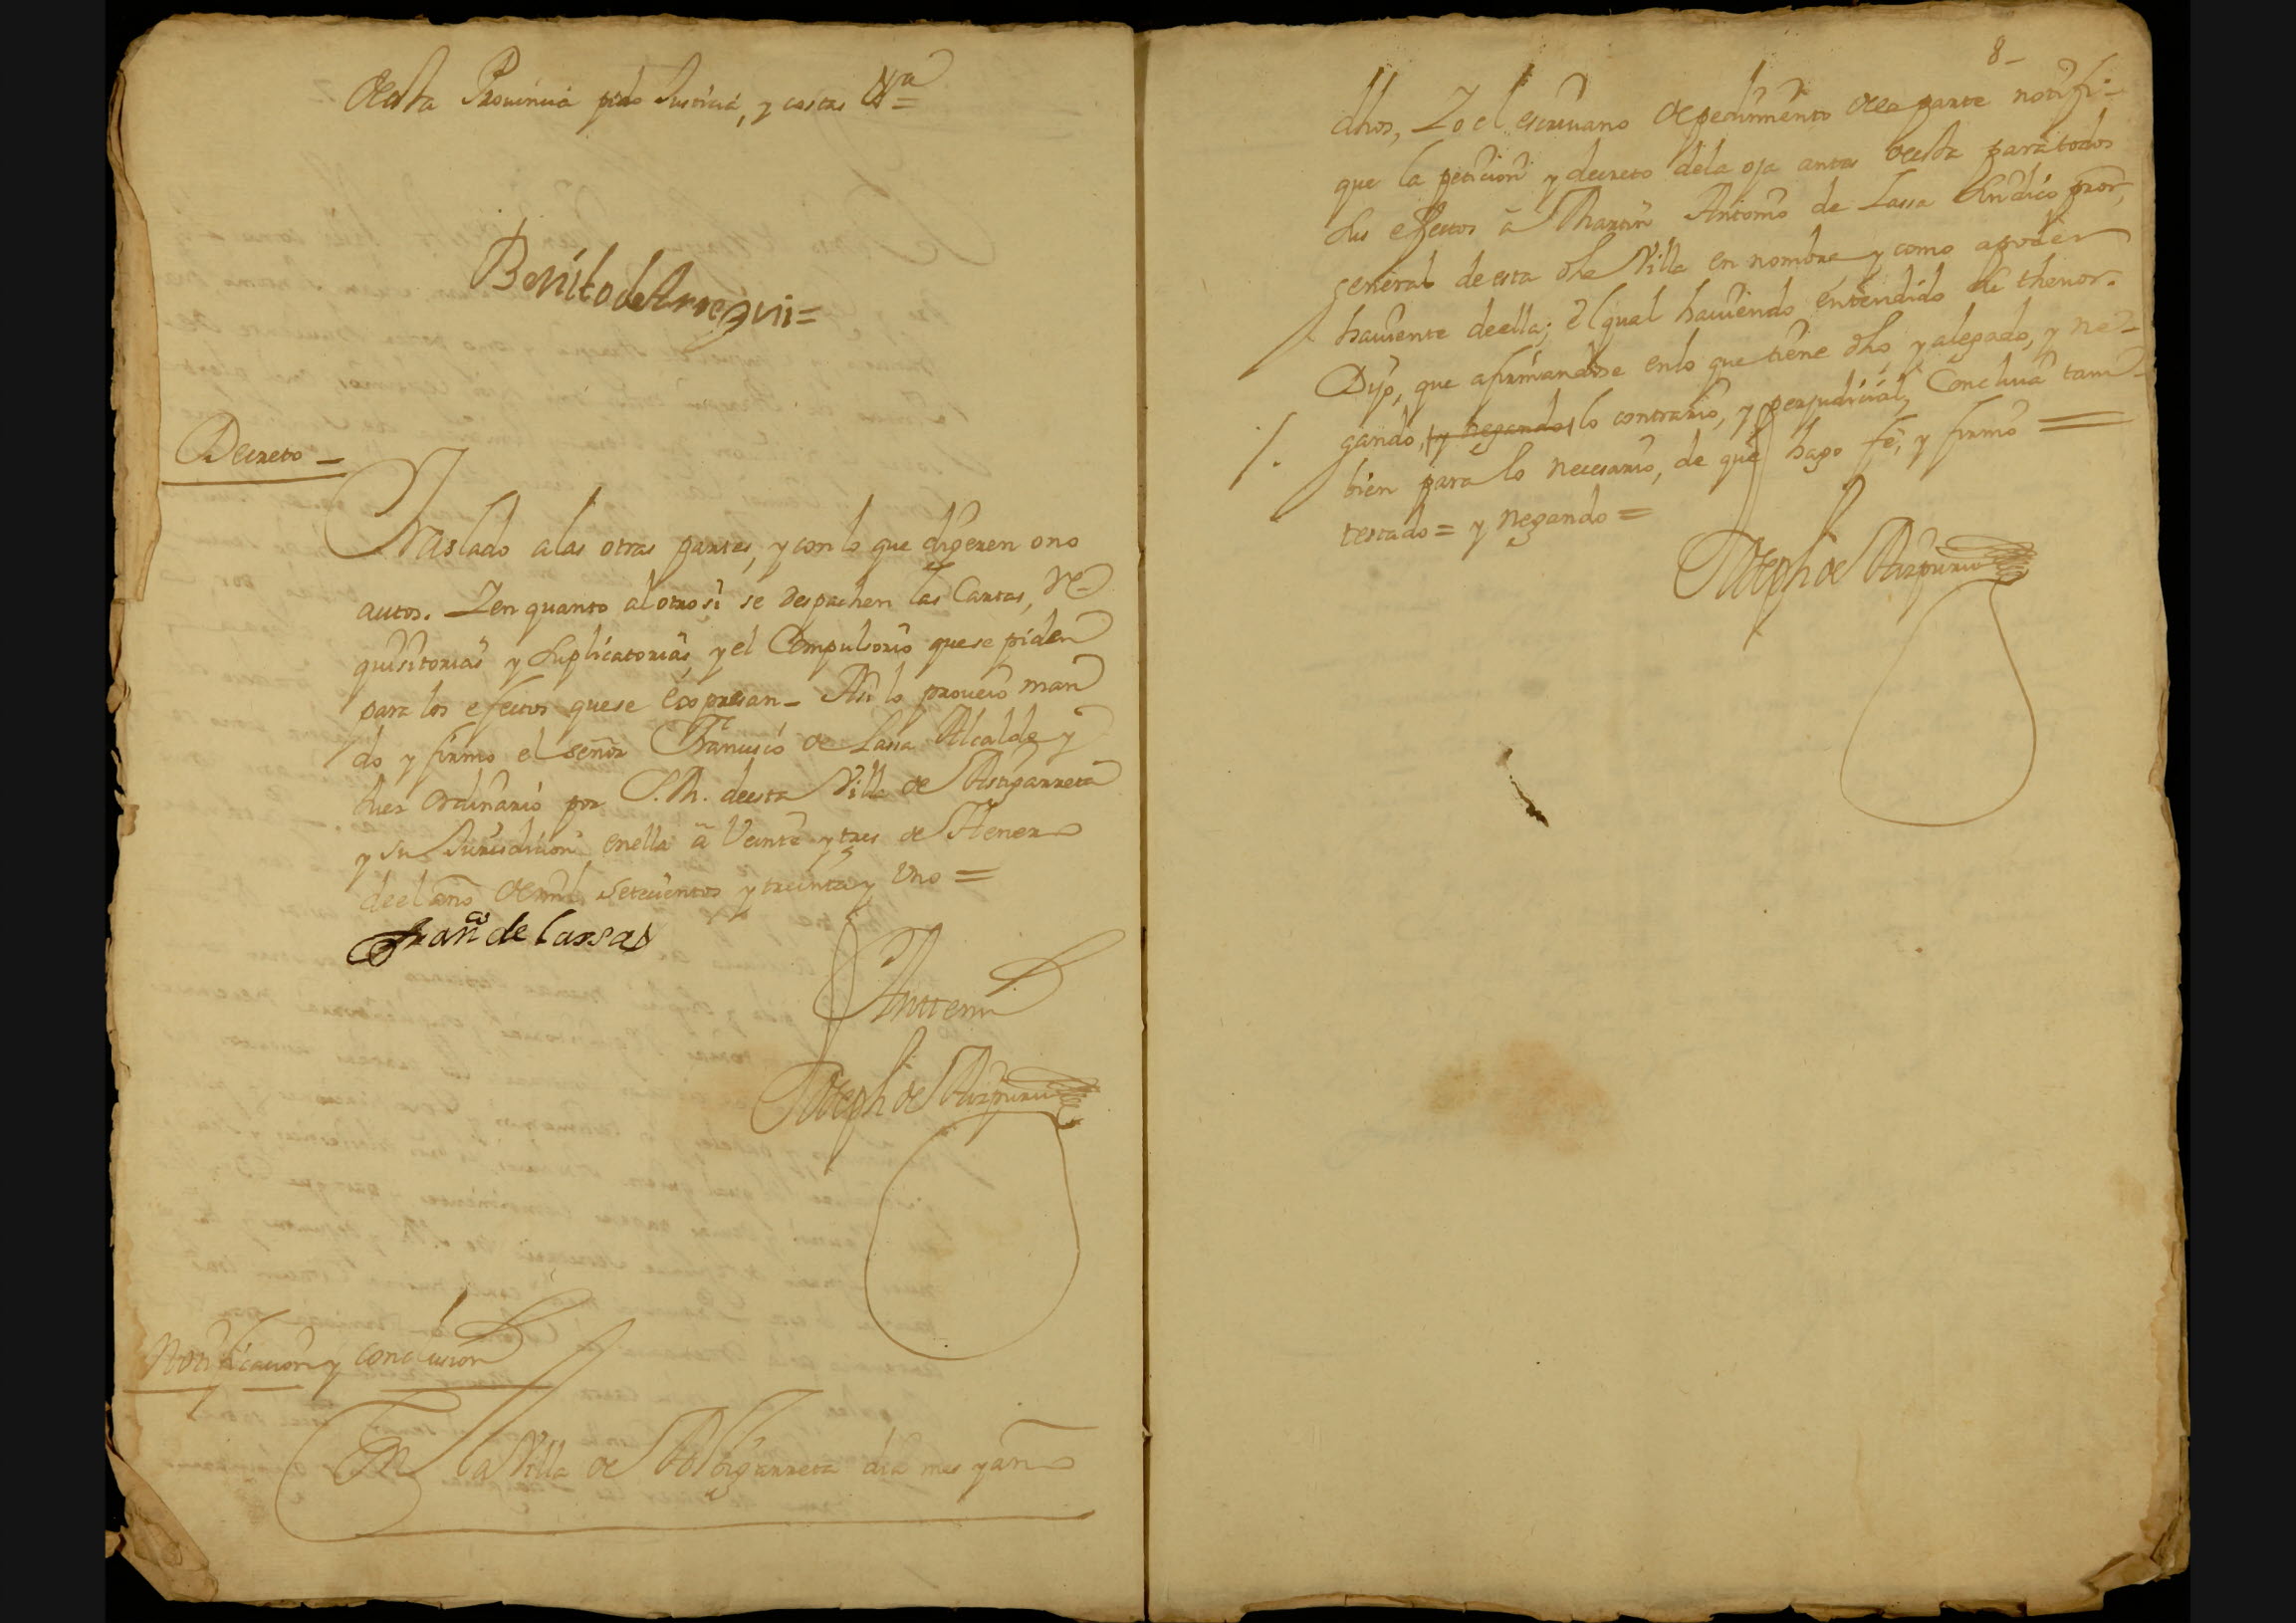 de esta Provincia pido Justicia, y costas &ª=
Benito de Arregui=
Decreto—
Traslado a las otras partes, y con lo que digeren o no
autos. Y en quanto al otrosi se despachen las Cartas, re-
quisitorias y suplicatorias, y el Compulsorio que se piden
para los efectos que se expresan— Asi lo proveio man
do y firmo el señor Francisco de Lassa Alcalde y
Juez ordinario por S.M. de esta Villa de Astigarreta
y su Jurisdicion, en ella â Veinte y tres de Henero
de el año de mil setecientos y treinta y uno=
Franco de Lassa
Ante mi
Joseph de Aizpuru
Notificacion y conclusion
En la Villa de Astigarreta dia mes y año
8—
dhos, Yo el escrivano de pedimento de la parte notifi-
que la peticion y decreto de la oja antes de esta para todos
sus efectos â Martin Antonio de Lassa Sindico pror,
general de esta dha Villa en nombre, y como apoder
haviente de ella; el qual haviendo entendido su thenor.
Dijo, que afirmandose en lo que tiene dho y alegado, y ne-
gando, y negando, lo contrario, y perjudicial, Concluia tam-
bien para lo necesario, de que hago fé, y firmo=
testado= y negando=
Joseph de Aizpuru